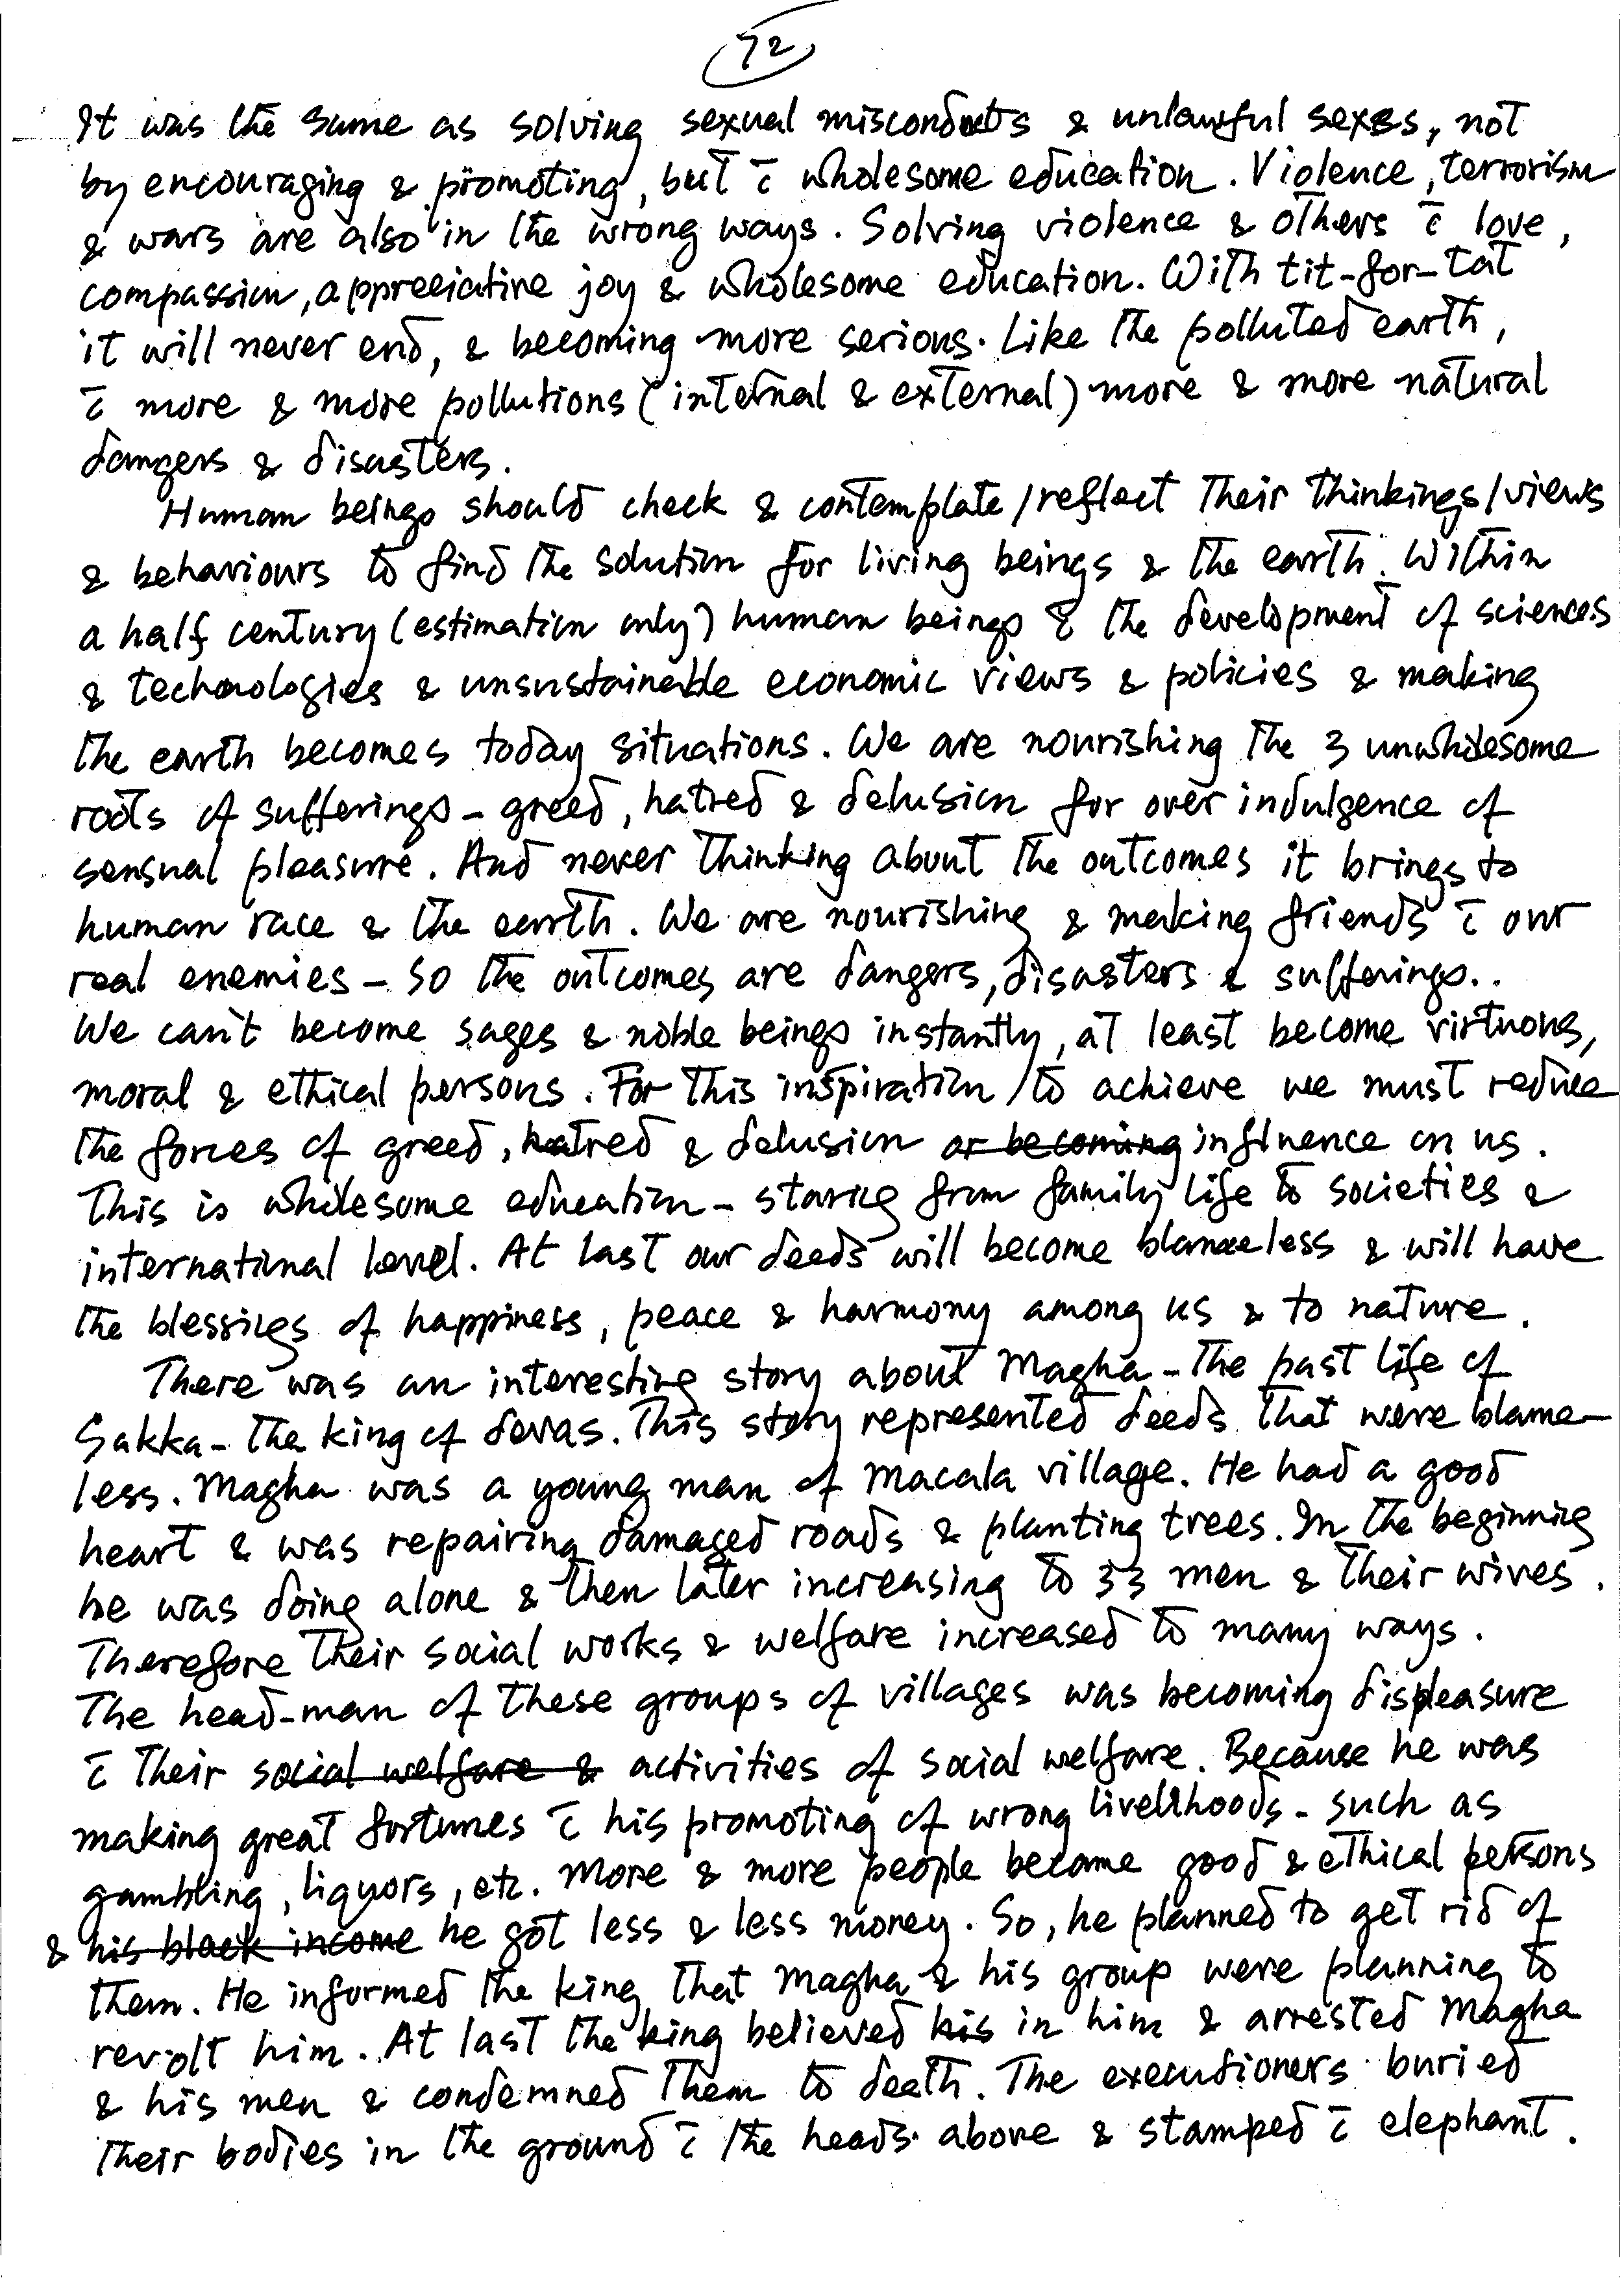 72
It was the same as solving sexual misconducts & unlawful sexes, not
by encouraging & promoting, but c̄ wholesome education. Violence, terrorism
& wars are also in the wrong ways. Solving violence & others c̄ love,
compassion, appreciative joy & wholesome education. With tit-for-tat
it will never end, & becoming more serious. Like the polluted earth,
c̄ more & more pollutions (internal & external) more & more natural
dangers & disasters.
Human beings should check & contemplate/reflect their thinkings/views
& behaviours to find the solution for living beings & the earth. Within
a half century (estimation only) human beings & the development of sciences
& technologies & unsustainable economic views & policies & making
the earth becomes today situations. We are nourishing the 3 unwholesome
roots of sufferings - greed, hatred & delusion for over indulgence of
sensual pleasure. And never thinking about the outcomes it brings to
human race & the earth. We are nourishing & making friends c̄ our
real enemies - so the outcomes are dangers, disasters & sufferings..
We can't become sages & noble beings instantly, at least become virtuous,
moral & ethical persons. For this inspiration/to achieve we must reduce
the forces of greed, hatred & delusion or becoming influence on us.
This is wholesome education - staring from family life to societies &
international level. At last our deeds will become blameless & will have
the blessings of happiness, peace & harmony among us & to nature.
There was an interesting story about Magha - the past life of
Sakka - the king of devas. This story represented deeds that were blame-
less. Magha was a young man of Macala village. He had a good
heart & was repairing damaged roads & planting trees. In the beginning
he was doing alone & then later increasing to 33 men & their wives.
Therefore their social works & welfare increased to many ways.
The head-man of these groups of villages was becoming displeasure
c̄ their social welfare & activities of social welfare. Because he was
making great fortunes c̄ his promoting of wrong livelihoods - such as
gambling, liquors, etc. More & more people became good & ethical persons
& his black income he got less & less money. So, he planned to get rid of
them. He informed the king that Magha & his group were planning to
revolt him. At last the king believed his in him & arrested Magha
& his men & condemned them to death. The executioners buried
their bodies in the ground c̄ the heads above & stamped c̄ elephant.